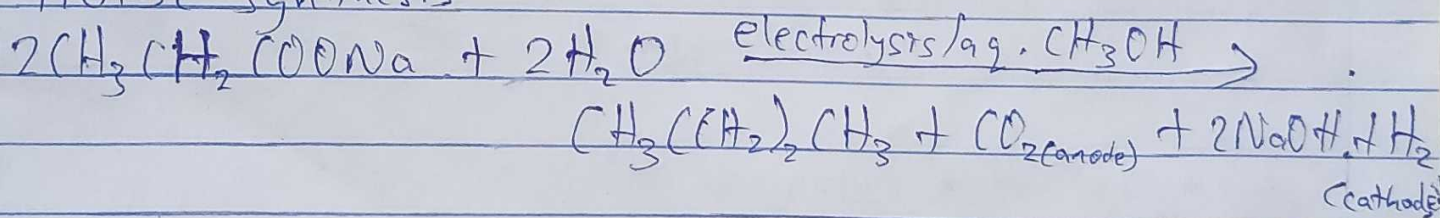 2CH₃CH₂COONa + 2H₂O electrolysis/aq. CH₃OH →
CH₃(CH₂)₂CH₃ + CO₂(anode) + 2NaOH + H₂
(cathode)